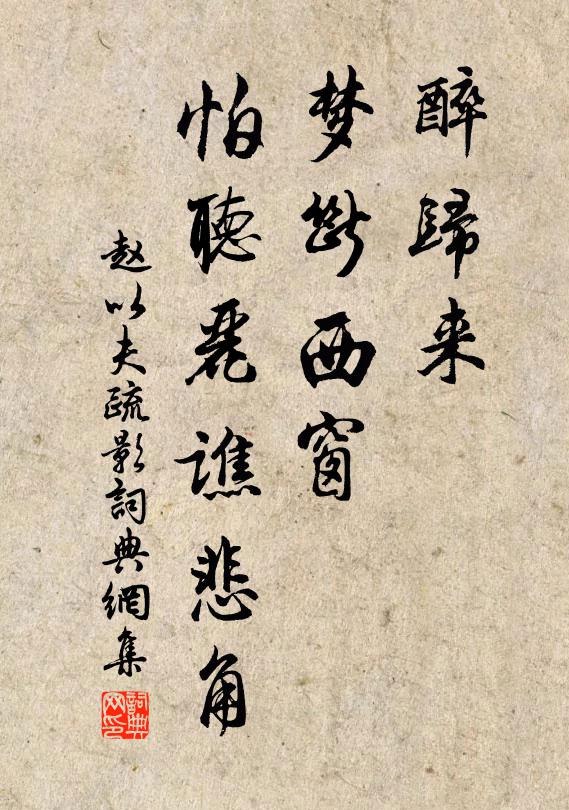 醉歸来
梦斷西窗
怕聽麗譙悲角
赵以夫疏影詞典網集
詞典
网印